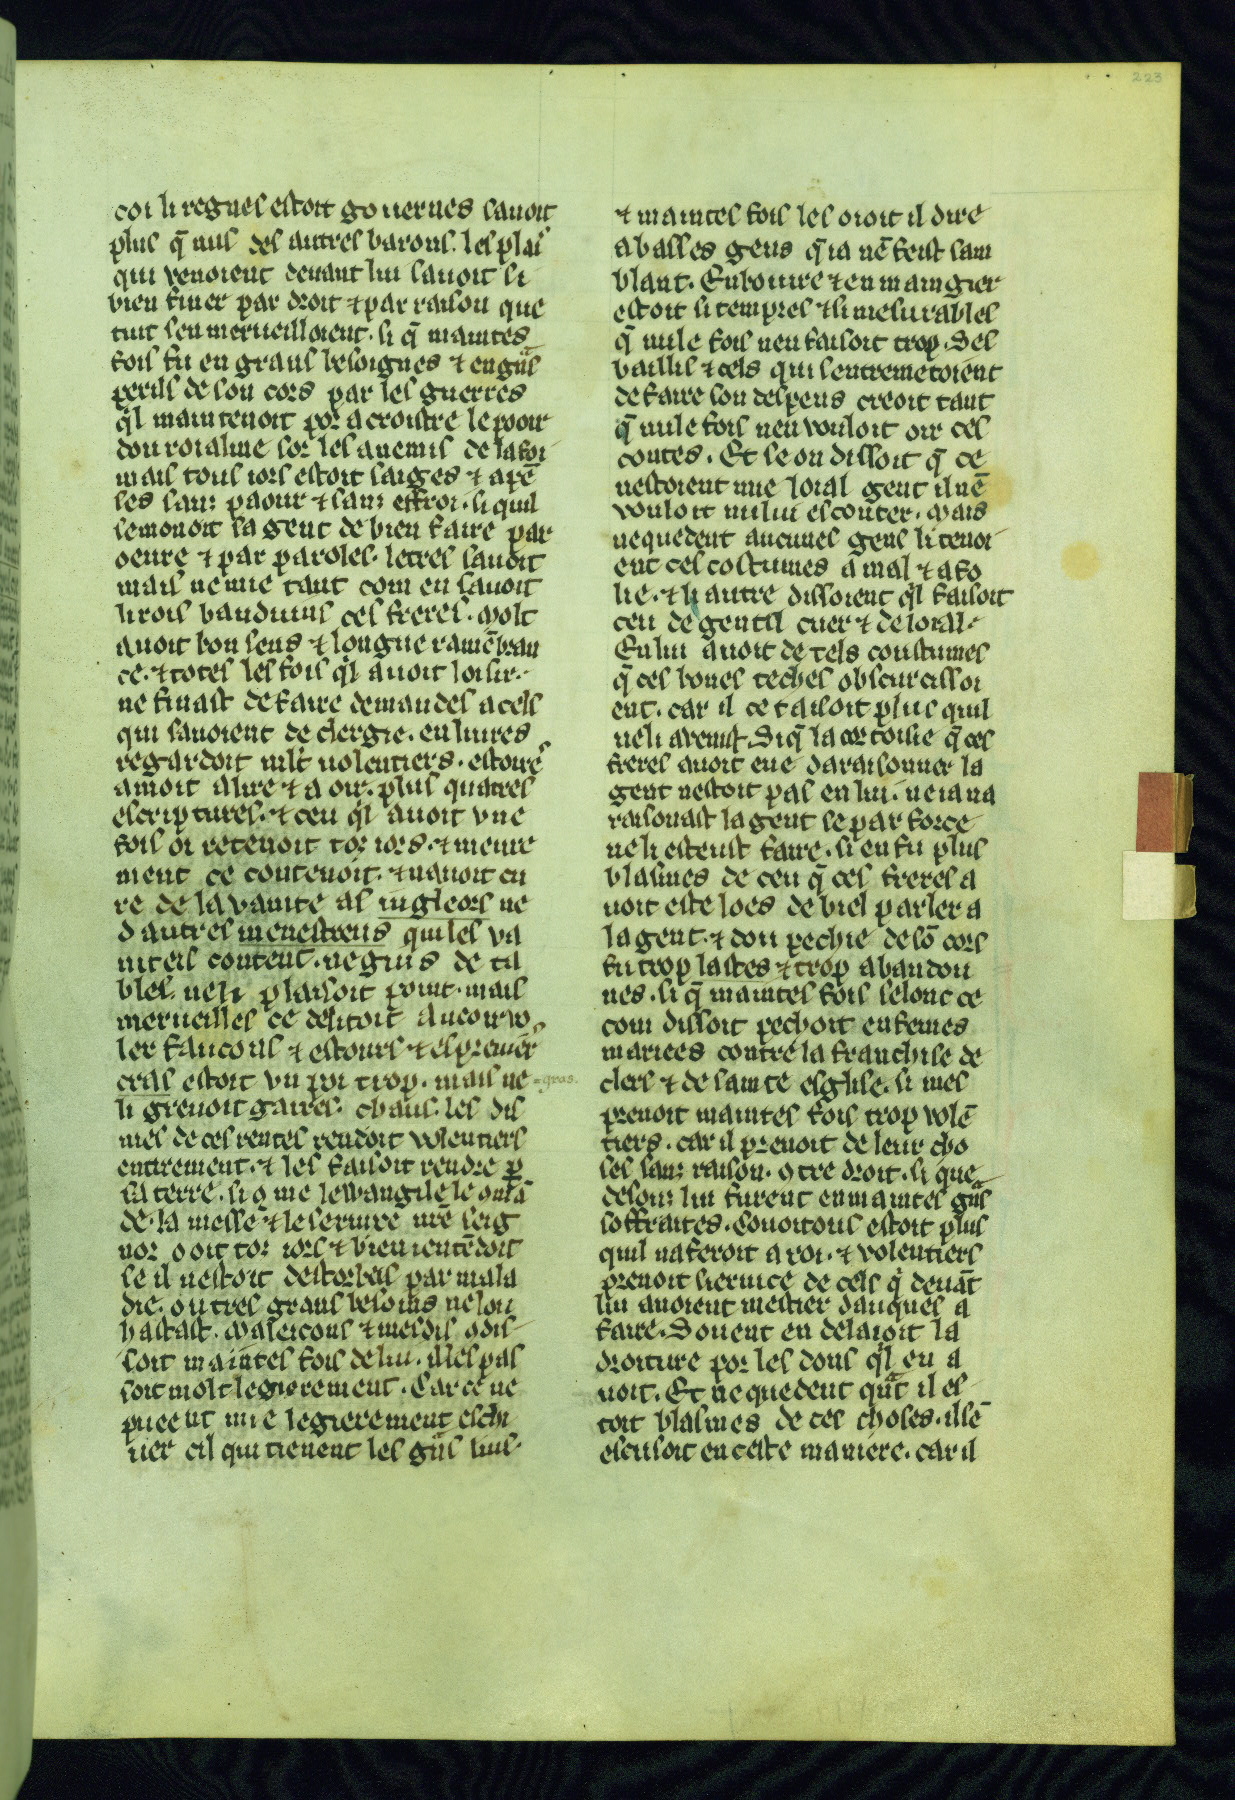 223
coi li regnes estoit gouernes sauoit
plus q̄ nus des autres barons. les plai
qui venoient deuant lui sauoit si
bien finer par droit ⁊ par raison que
tuit sen merueilloient. si q̄ maintes
fois fu en grans besoignes ⁊ en gͣns
perils de son cors par les guerres
qͥl maintenoit por acroistre le pooir
dou roialme sor les anemis de la foi
mais tous iors estoit saiges ⁊ apē
ses sanz paour ⁊ sanz effroi. si quil
semonoit sa gent de bien faire par
oeure ⁊ par paroles. letres sauoit
mais ne mie tant com en sauoit
li rois bauduins ces freres. Molt
auoit bon sens ⁊ longue ramēbran
ce. ⁊ totes les fois qͥl auoit loisir.
ne finast de faire demandes a cels
qui sauoient de clergie. en liures
regardoit mlt̄ uolentiers. estoires
amoit a lire ⁊ a oir. plus quatres
escriptures. ⁊ ceu qͥl auoit vne
fois oi retenoit toz iors. ⁊ meure
ment ce contenoit. ⁊ nauoit cu
re de la vanite as iugleors ne
dautres menestreus qui les va
niteis content. ne gius de ta
bles. ne li plaisoit point. mais
merueilles ce delitoit a ueoir vo
ler faucons ⁊ estours ⁊ espreuiers
cras estoit vn poi trop. mais ne =gras.
li greuoit gaires. chaus. les dis
mes de ces rentes rendoit volentiers
entirement. ⁊ les faisoit rendre p̱
sa terre. si ꝯme lewangile le ꝯmā
de. la messe ⁊ le seruire nr̄e seig
nor ooit toz iors ⁊ bien i entēdoit
se il nestoit destorbeis par mala
die. ou tres grans besoins ne lou
hastast. Maleicons ⁊ mesdis ꝯdis
soit maintes fois de lui. illes pas
soit molt legierement. Car ce ne
pueent mie legierement eschi
uer cil qui tienent les gͣns lius.
⁊ maintes fois les oioit il dire
a basses gens q̄ ia nē feist sam
blant. En boiure ⁊ en maingier
estoit si tempres ⁊ si mesurables
q̄ nule fois nen faisoit trop. Des
baillis ⁊ cels qui sentremetoient
de faire son despens creoit tant
q̄ nule fois nen vouloit oir ces
contes. Et se on dissoit q̄ ce
nestoient mie loial gent il nē
vouloit nului escouter. Mais
nequedent aucunes gens li tenoi
ent ces costumes a mal ⁊ a fo
lie. ⁊ li autre dissoient qͥl faisoit
ceu de gentil cuer ⁊ de loial.
En lui auoit de tels coustumes
q̄ ces bones teches obscurcissoi
ent. car il ce taisoit plus quil
ne li auenist. Si q̄ la cortoisie q̄ ces
freres auoit eue daraisonner la
gent nestoit pas en lui. ne ia na
raisonast la gent se par force
ne li esteust faire. si en fu plus
blasmes de ceu q̄ ces freres a
uoit este loes de biel parler a
la gent. ⁊ dou pechie de sō cors
fu trop lastes ⁊ trop abandon
nes. si q̄ maintes fois selonc ce
com dissoit pechoit en femes
mariees contre la franchise de
clers ⁊ de sainte esglise. si mes
prenoit maintes fois trop volē
tiers. car il prenoit de leur cho
ses sanz raison. ꝯtre droit. si que
desouz lui furent en maintes gͣns
soffraites. Couoitous estoit plus
quil naferoit a roi. ⁊ volentiers
prenoit seruice de cels qͥ deuāt
lui auoient mestier dauques a
faire. Souent en delaioit la
droiture por les dons qͥl en a
uoit. Et nequedent qͣt il es
toit blasmes de tes choses. il sē
escusoit en ceste maniere. car il